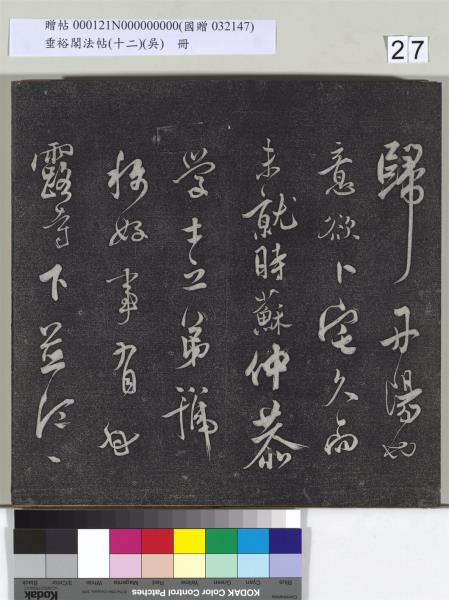 贈帖 000121N000000000(國贈 032147)
垂裕閣法帖(十二)(吳) 冊
27
歸丹陽也
意欲卜宅久而
未就時蘇仲恭
學士之弟號
稱好事有甘
露寺下並江一
Blue Cyan Green Yellow Red Magenta White 3/Color Black
KODAK Color Control Patches